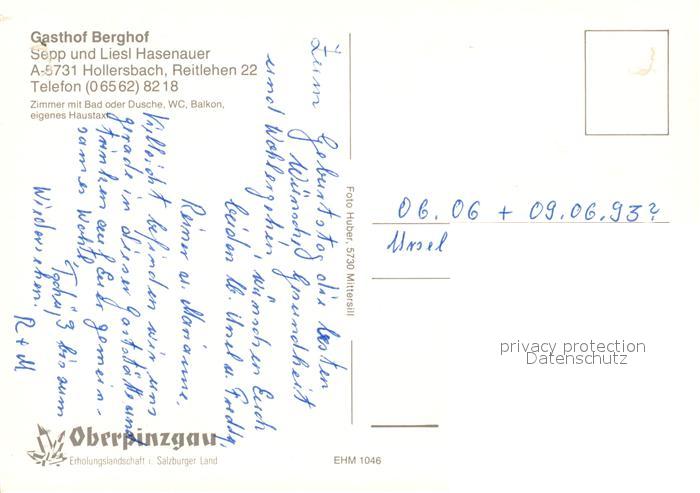 Gasthof Berghof
Sepp und Liesl Hasenauer
A-5731 Hollersbach, Reitlehen 22
Telefon (06562) 8218
Zimmer mit Bad oder Dusche, WC, Balkon,
eigenes Haustaxi
Zum Geburtstag die besten
Wünsche, Gesundheit
und Wohlergehen wünschen Euch
beiden lb. Ursel u. Freddy,
Reiner u. Marianne.
Vielleicht befinden wir uns
gerade in dieser Gaststätte und
trinken auf Euer gemein-
sames Wohl.
Tschüß bis zum
Wiedersehen. R + M
Foto Huber, 5730 Mittersill
06.06 + 09.06.93?
Ursel
privacy protection
Datenschutz
Oberpinzgau
Erholungslandschaft i. Salzburger Land
EHM 1046